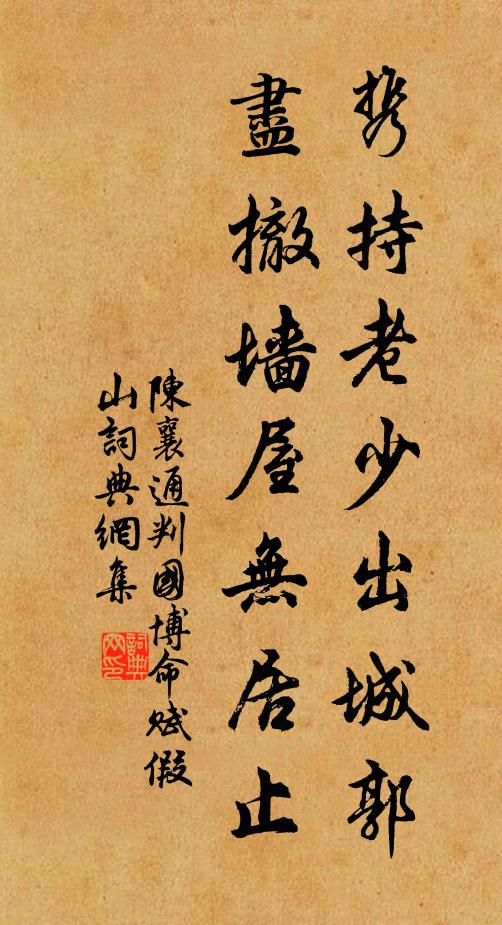 携持老少出城郭
盡撤墻屋無居止
陳襄通判國博命賦假
山詞典網集
詞典網印